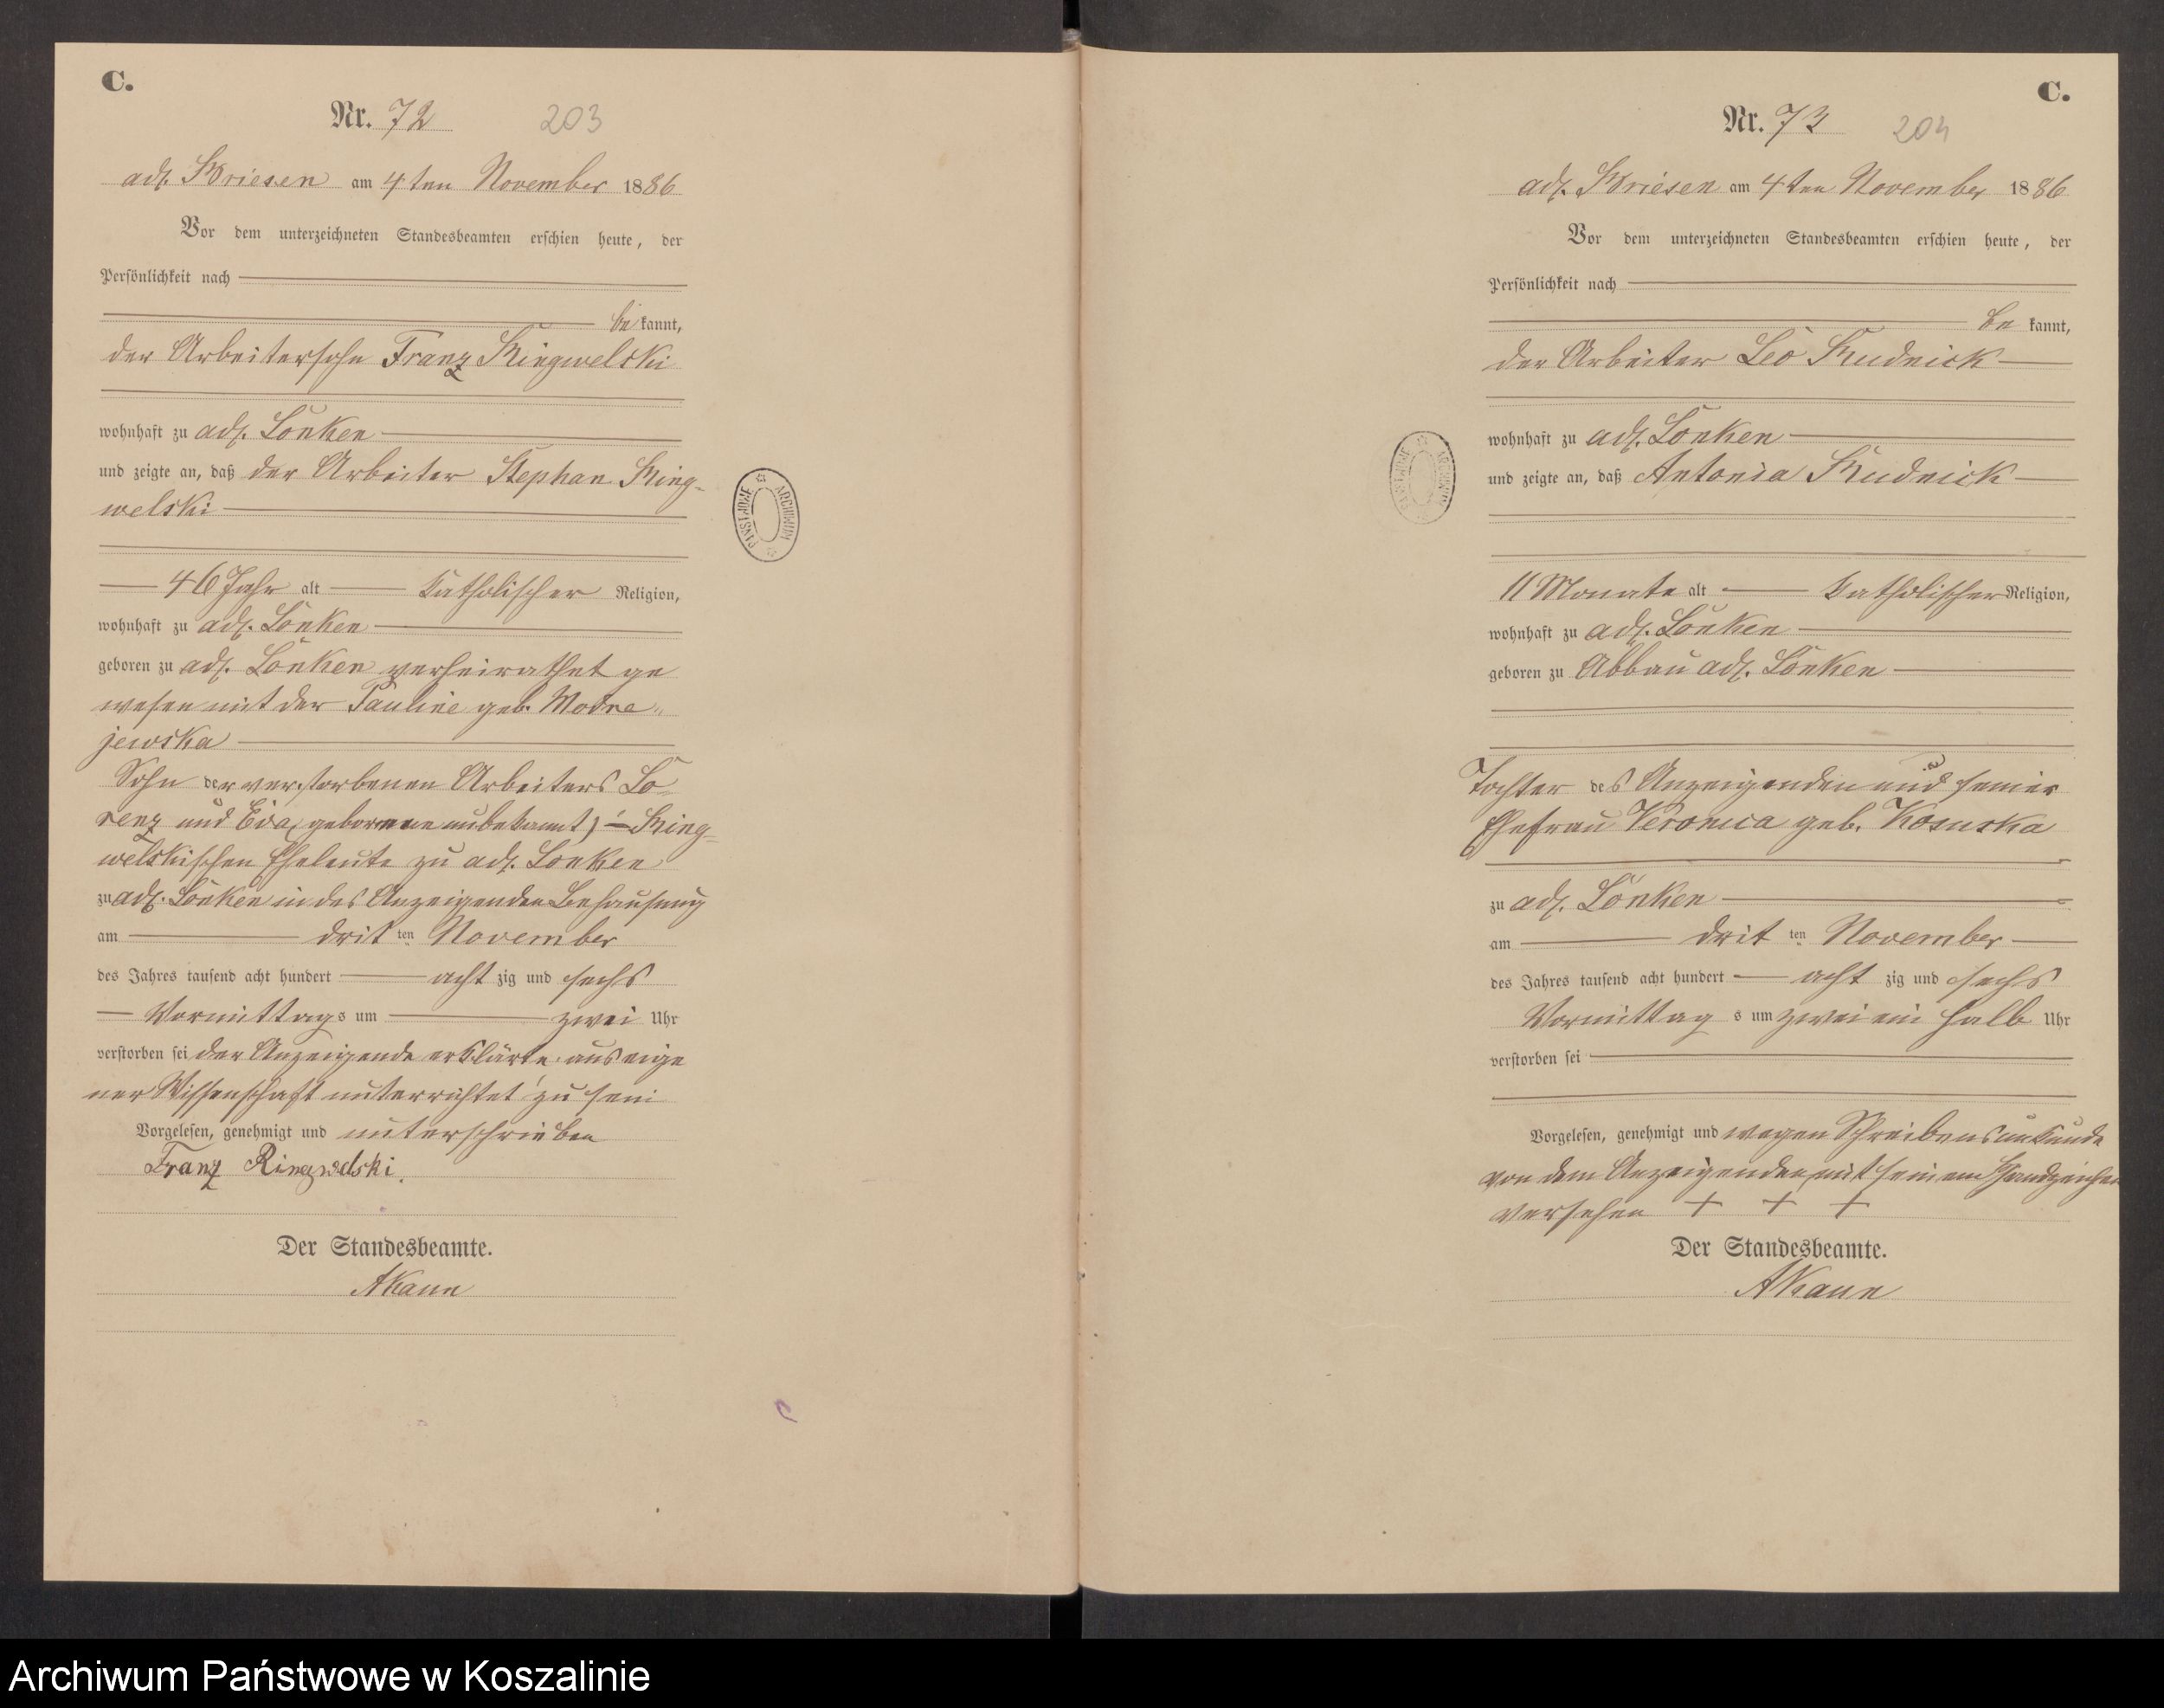 C.
Nr. 72 203
adl. Briesen am 4ten November 1886
Vor dem unterzeichneten Standesbeamten erschien heute, der
Persönlichkeit nach
be kannt,
der Arbeitersohn Franz Ringwelski
wohnhaft zu adl. Lonken
und zeigte an, daß der Arbeiter Stephan Ring-
welski
46 Jahr alt katholischer Religion,
wohnhaft zu adl. Lonken
geboren zu adl. Lonken verheirathet ge
wesen mit der Pauline geb. Modre
jewska
Sohn der verstorbenen Arbeiters Lo-
renz und Eva, geborene unbekannt) – Ring-
welskischen Eheleute zu adl. Lonken
zu adl. Lonken in des Anzeigenden Behausung
am drit ten November
des Jahres tausend acht hundert acht zig und sechs
Vormittags um zwei Uhr
verstorben sei der Anzeigende erklärte aus eige
ner Wissenschaft unterrichtet zu sein
Vorgelesen, genehmigt und unterschrieben
Franz Ringwelski.
Der Standesbeamte.
AKann
PAŃSTWOWE ARCHIWUM
C.
Nr. 73 204
adl. Briesen am 4ten November 1886
Vor dem unterzeichneten Standesbeamten erschien heute, der
Persönlichkeit nach
be kannt,
der Arbeiter Leo Rudnick
wohnhaft zu adl. Lonken
und zeigte an, daß Antonia Rudnick
11 Monate alt katholischer Religion,
wohnhaft zu adl. Lonken
geboren zu Abbau adl. Lonken
Tochter des Anzeigenden und seiner
Ehefrau Veronica geb. Kosnska
zu adl. Lonken
am drit ten November
des Jahres tausend acht hundert acht zig und sechs
Vormittag s um zwei ein halb Uhr
verstorben sei
Vorgelesen, genehmigt und wegen Schreibensunkunde
von dem Anzeigenden mit seinem Handzeichen
versehen + + +
Der Standesbeamte.
AKann
PAŃSTWOWE ARCHIWUM
Archiwum Państwowe w Koszalinie